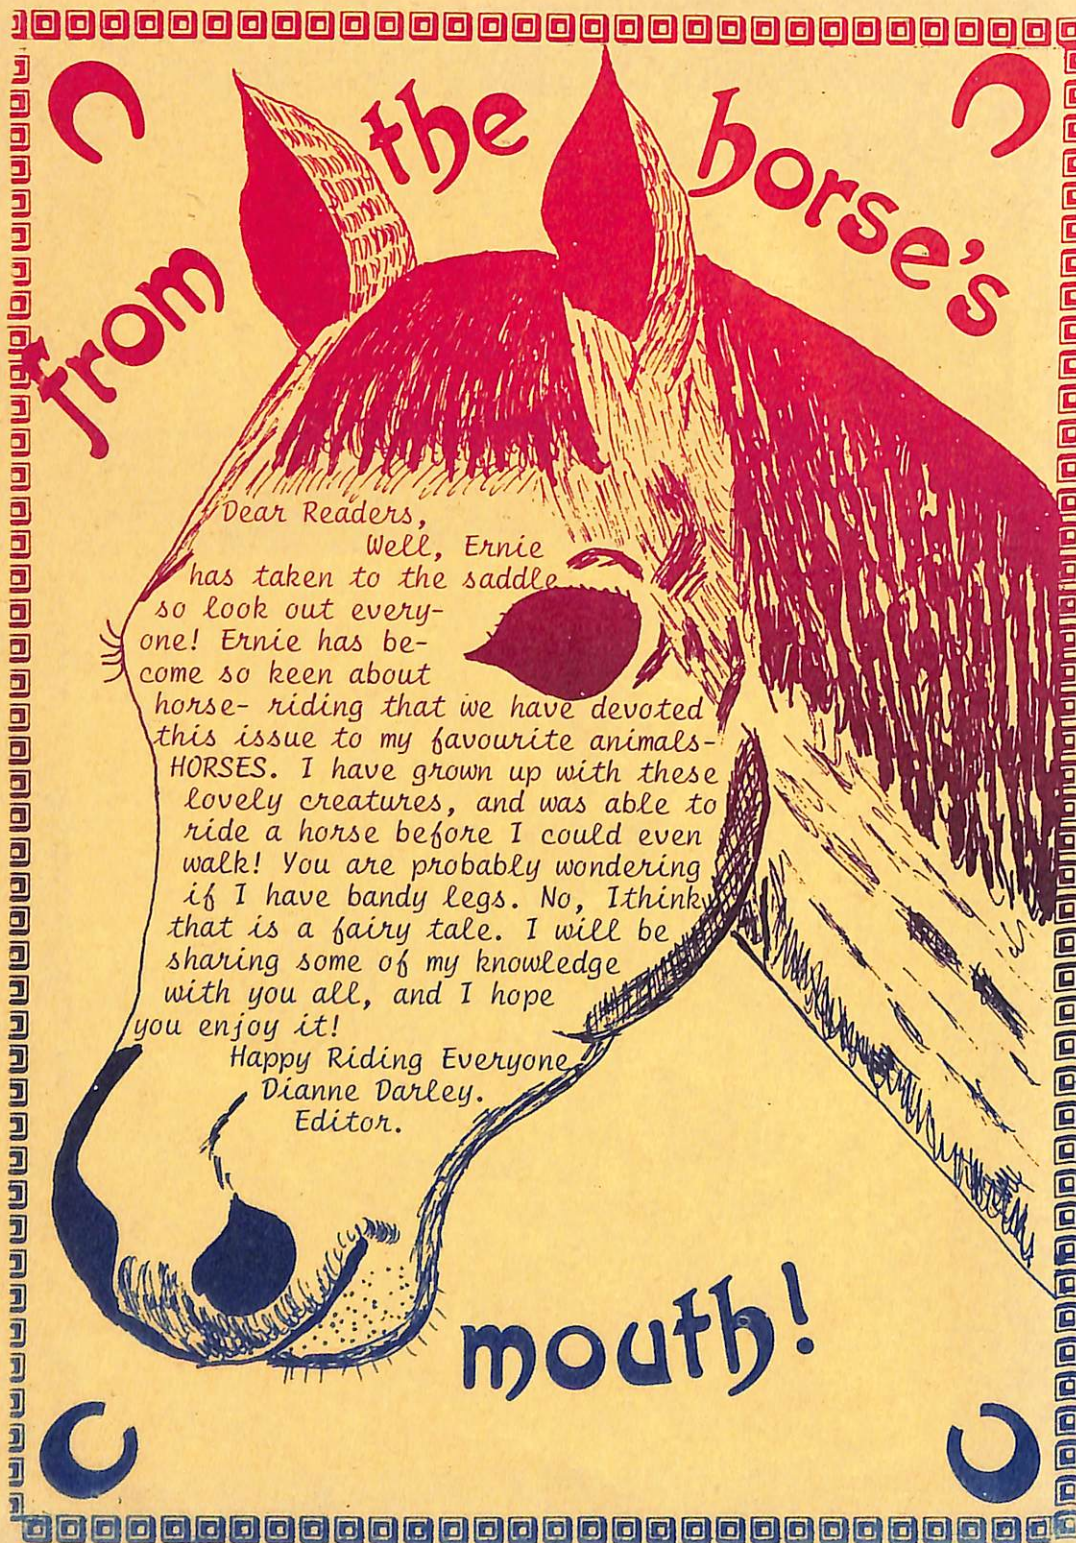 from the horse's
Dear Readers,
Well, Ernie
has taken to the saddle
so look out every-
one! Ernie has be-
come so keen about
horse- riding that we have devoted
this issue to my favourite animals-
HORSES. I have grown up with these
lovely creatures, and was able to
ride a horse before I could even
walk! You are probably wondering
if I have bandy legs. No, Ithink
that is a fairy tale. I will be
sharing some of my knowledge
with you all, and I hope
you enjoy it!
Happy Riding Everyone
Dianne Darley.
Editor.
mouth!